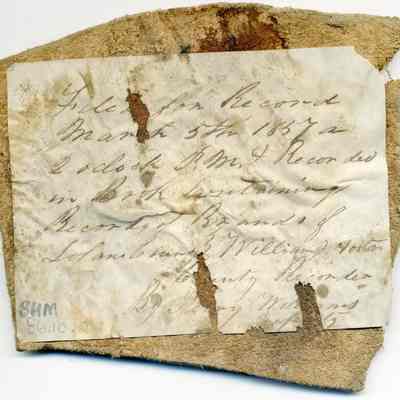 Filed for Record
March 5th 1857 a
2 oclock P.M. & Recorded
in Book containing
Records of Brands of
William Foster
County Recorder
By
SHM